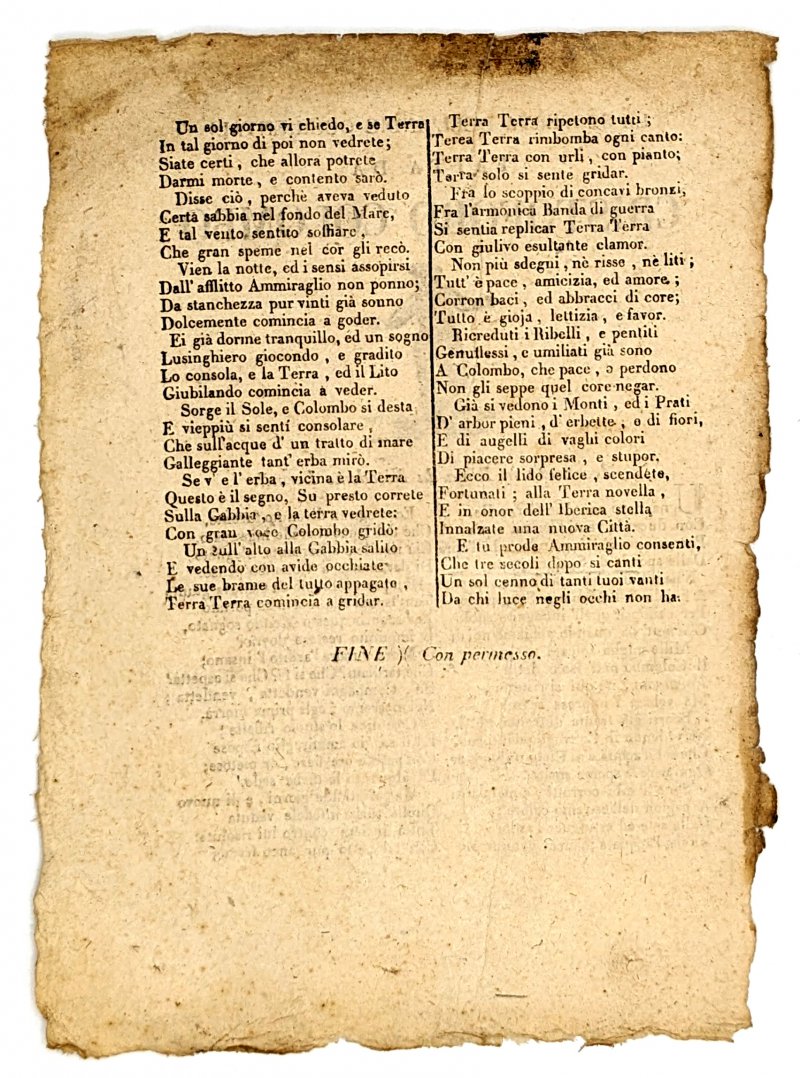 Un sol giorno vi chiedo, e se Terra
In tal giorno di poi non vedrete;
Siate certi, che allora potrete
Darmi morte, e contento sarò.
Disse ciò, perchè aveva veduto
Certa sabbia nel fondo del Mare,
E tal vento sentito soffiare,
Che gran speme nel cor gli recò.
Vien la notte, ed i sensi assopirsi
Dall' afflitto Ammiraglio non ponno;
Da stanchezza pur vinti già sonno
Dolcemente comincia a goder.
Ei già dorme tranquillo, ed un sogno
Lusinghiero giocondo, e gradito
Lo consola, e la Terra, ed il Lito
Giubilando comincia a veder.
Sorge il Sole, e Colombo si desta
E vieppiù si sentì consolare,
Che sull'acque d' un tratto di mare
Galleggiante tant' erba mirò.
Se v' e l' erba, vicina è la Terra
Questo è il segno, Su presto correte
Sulla Gabbia, e la terra vedrete:
Con gran voce Colombo gridò
Un sull' alto alla Gabbia salito
E vedendo con avide occhiate
Le sue brame del tutto appagate,
Terra Terra comincia a gridar.
Terra Terra ripetono tutti;
Terea Terra rimbomba ogni canto:
Terra Terra con urli, con pianto;
Terra solo si sente gridar.
Fra lo scoppio di concavi bronzi,
Fra l'armonica Banda di guerra
Si sentia replicar Terra Terra
Con giulivo esultante clamor.
Non più sdegni, nè risse, nè liti;
Tutt' è pace, amicizia, ed amore;
Corron baci, ed abbracci di core;
Tutto è gioja, lettizia, e favor.
Ricreduti i Ribelli, e pentiti
Genuflessi, e umiliati già sono
A Colombo, che pace, o perdono
Non gli seppe quel core negar.
Già si vedono i Monti, ed i Prati
D' arbor pieni, d' erbette, e di fiori,
E di augelli di vaghi colori
Di piacere sorpresa, e stupor.
Ecco il lido felice, scendete,
Fortunati; alla Terra novella,
E in onor dell' Iberica stella
Innalzate una nuova Città.
E tu prode Ammiraglio consenti,
Che tre secoli dopo si canti
Un sol cenno di tanti tuoi vanti
Da chi luce negli occhi non ha.
FINE )( Con permesso.